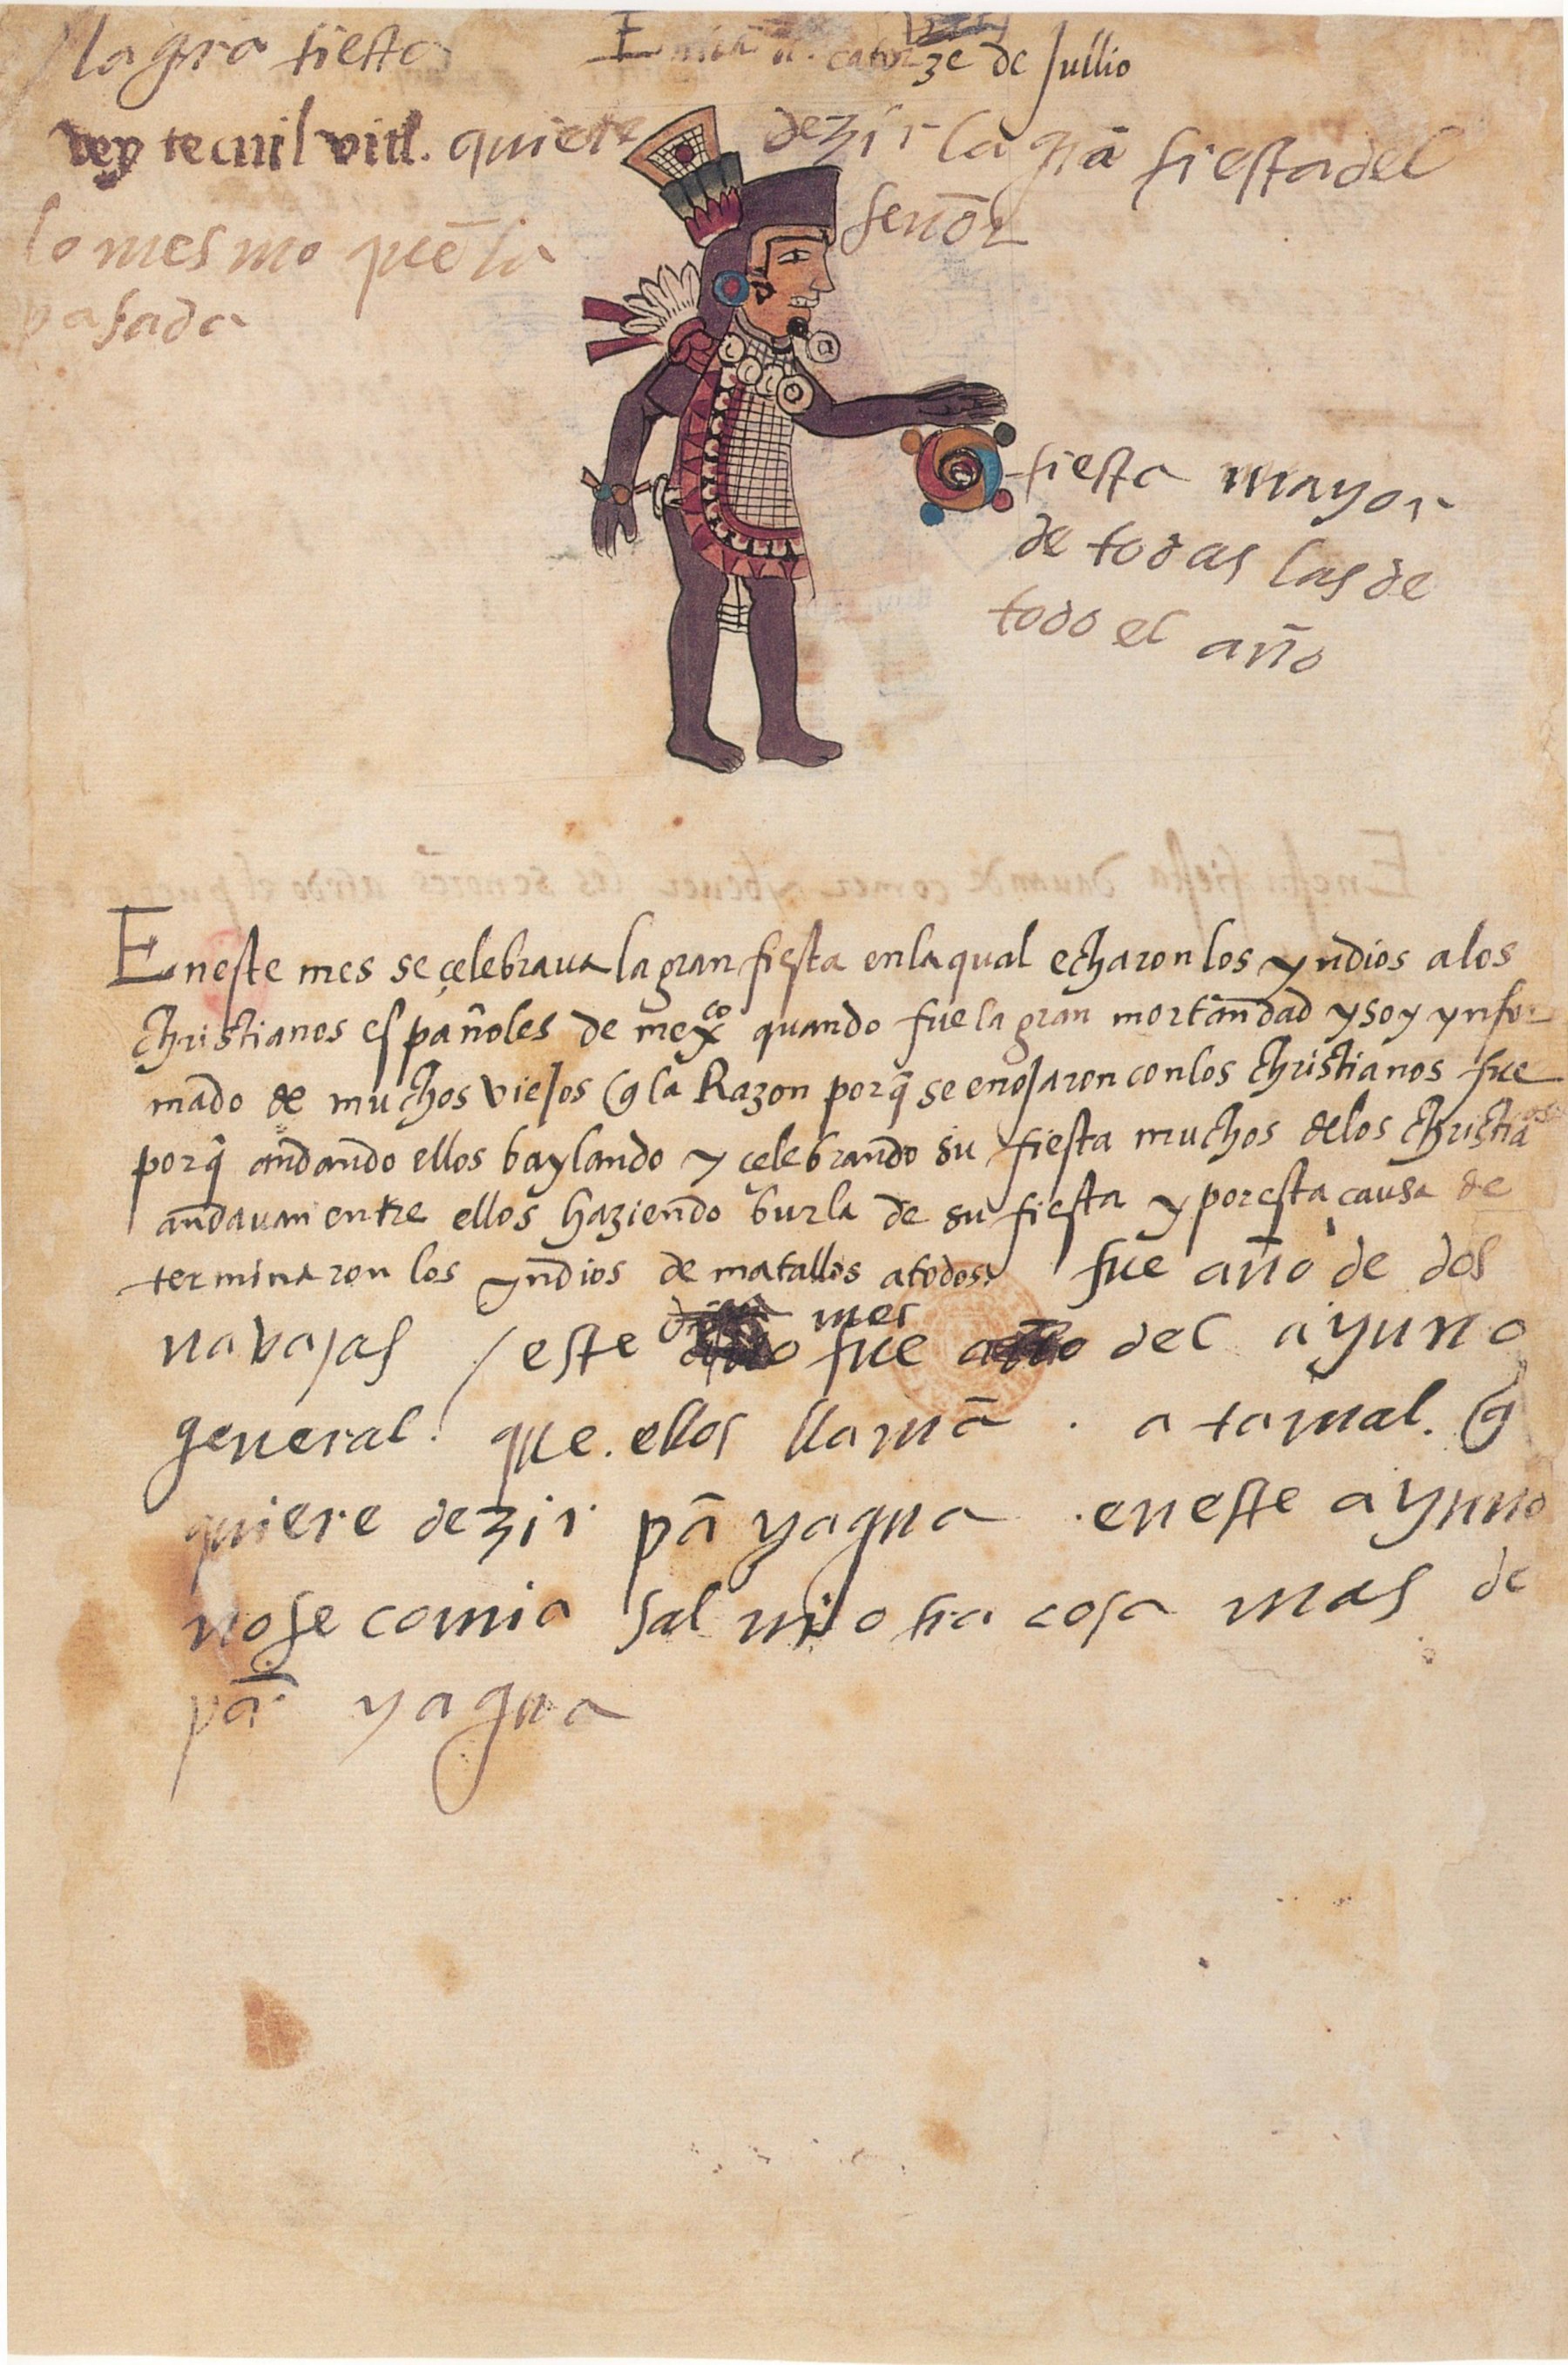 la gra fiesta
Entra a catorze de Jullio
vey tecuil vitl. quiere dezir la grã fiesta del
señor
lo mesmo q̃ ẽ la
pasada
fiesta mayor
de todas las de
todo el año
En este mes se çelebraua la gran fiesta enla qual echaron los yndios a los
christianos españoles de mexco quando fue la gran mortãndad y soy ynfor
mado de muchos viejos q̃ la Razon porq̃ se enojaron con los christianos fue
porq̃ andando ellos baylando y çelebrando su fiesta muchos delos christiaos
andauan entre ellos haziendo burla de su fiesta y por esta causa de
terminaron los yndios de matallos a todos. fue año de dos
navajas / este mes fue del ayuno
general. que ellos llamã . atamal. q̃
quiere dezir pã y agua . eneste ayuno
no se comia sal ni otra cosa mas de
pã y agua